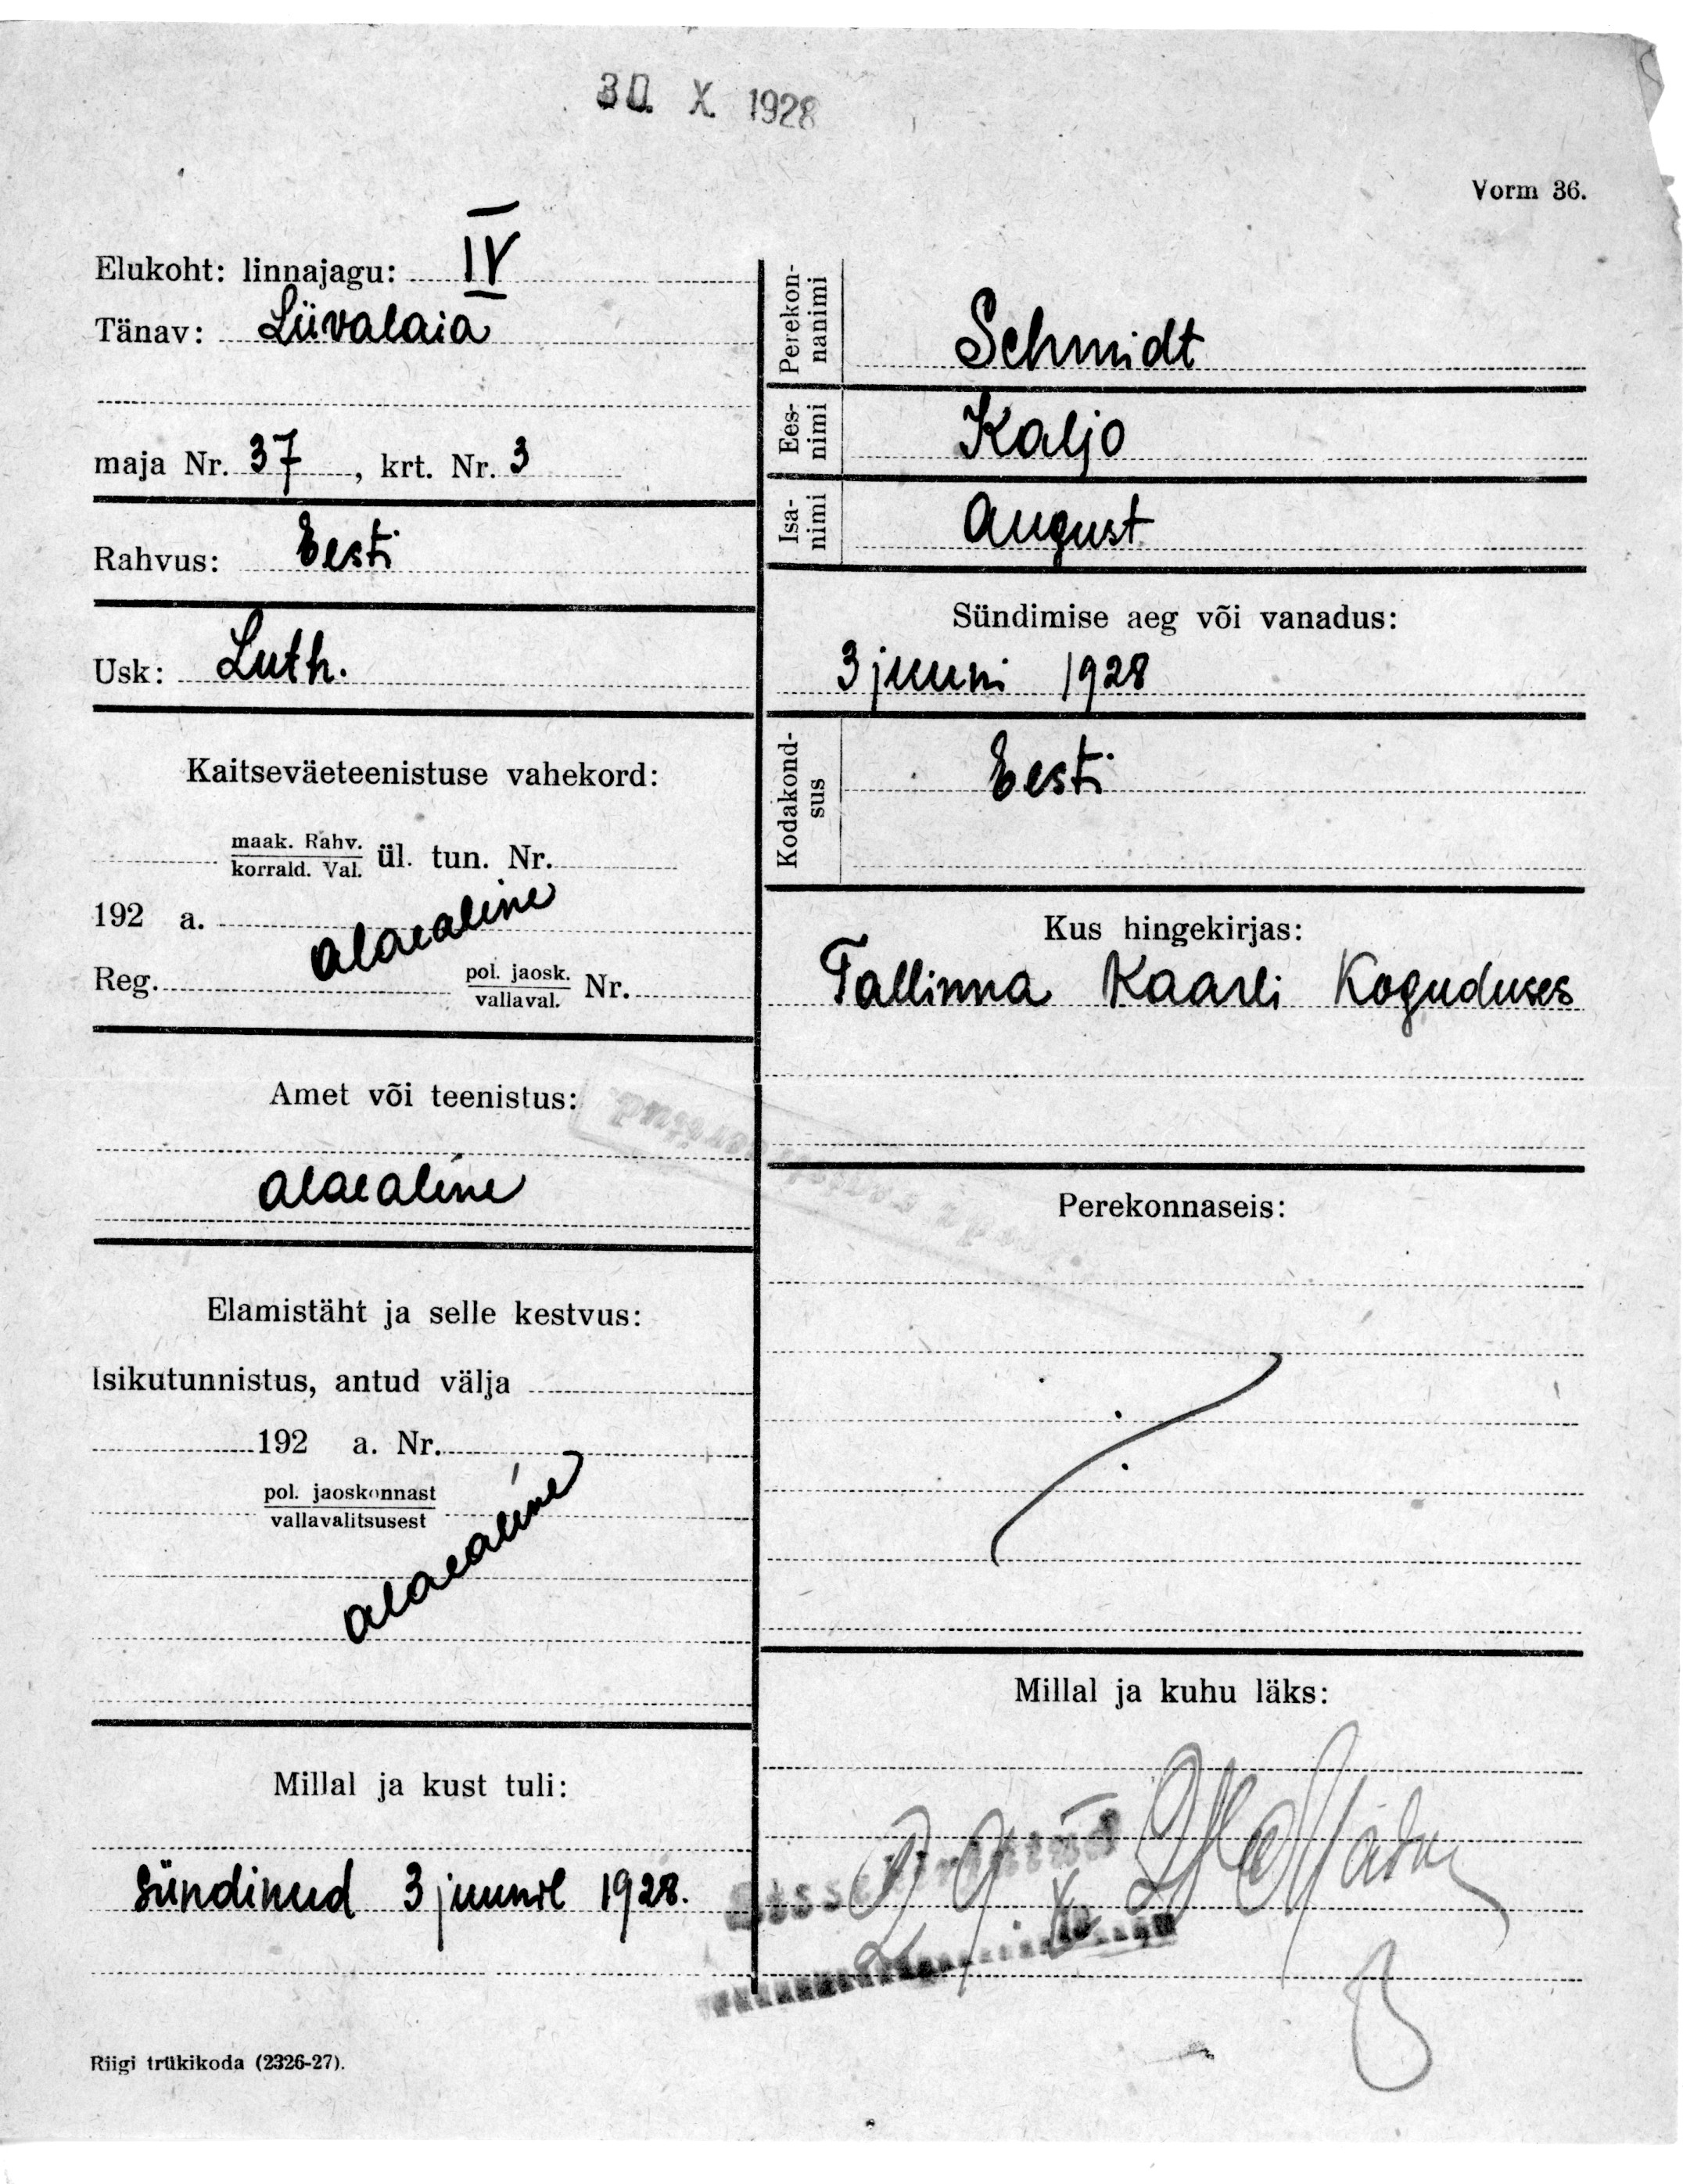 30. X. 1928
Vorm 36.
Elukoht: linnajagu: IV
Tänav: Liivalaia
maja Nr. 37, krt. Nr. 3
Rahvus: Eesti
Usk: Luth.
Kaitseväeteenistuse vahekord:
maak. Rahv.
korrald. Val. ül. tun. Nr.
192 a. alaealine
Reg. pol. jaosk. Nr.
vallaval.
Amet või teenistus:
alaealine
Elamistäht ja selle kestvus:
Isikutunnistus, antud välja
192 a. Nr.
pol. jaoskonnast
vallavalitsusest
alaealine
Millal ja kust tuli:
Sündinud 3 juunil 1928.
Perekon-
nanimi
Schmidt
Ees-
nimi
Kaljo
Isa-
nimi
August
Sündimise aeg või vanadus:
3 juuni 1928
Kodakond-
sus
Eesti
Kus hingekirjas:
Tallinna Kaarli Koguduses
Perekonnaseis:
Millal ja kuhu läks:
Riigi trükikoda (2326-27).